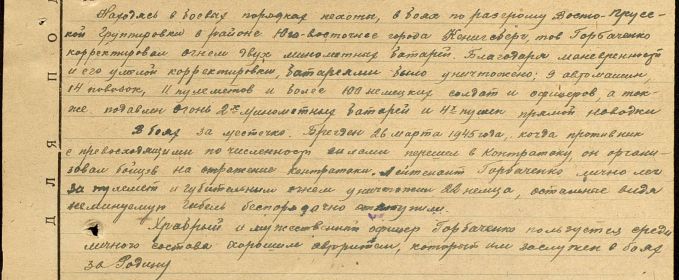 Находясь в боевых порядках пехоты, в боях по разгрому Восто-Прусс-
кой группировки в районе Юго-восточное города Кенигсберг, тов Горбаченко
корректировал огнем двух минометных батарей. Благодаря маневренности
и его умелой корректировки, батареями было уничтожено: 9 автомашин,
14 повозок, 11 пулеметов и более 100 немецких солдат и офицеров, а так-
же подавлен огонь 2х минометных батарей и 4х пушек прямой наводки
В боях за местечко Бреден 26 марта 1945 года, когда противник
с превосходящими по численност силами перешел в контратаку, он органи-
зовал бойцов на отражение контратаки. Лейтенант Горбаченко лично лег
за пулемет и губительным огнем уничтожил 22 немца, остальные видя
неминуемую гибель беспорядочно отступили.
Храбрый и мужественный офицер Горбаченко пользуется среди
личного состава хорошим авторитетом, который им заслужен в боях
за Родину
ДЛЯ ПО